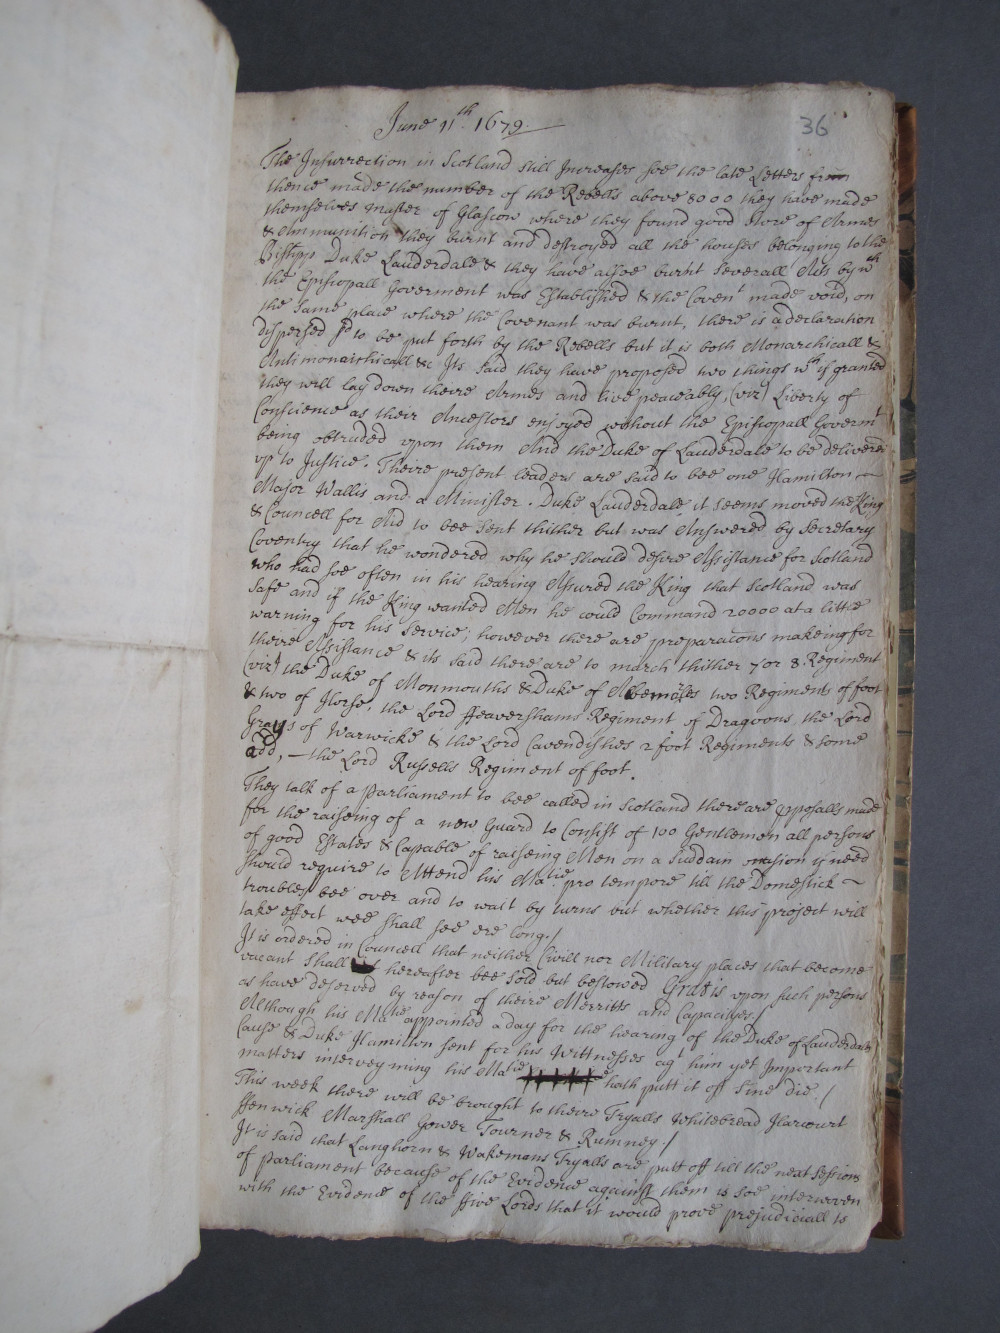 June 11th 1679.
36
The Insurrection in Scotland still Increases soe the late Letters from
thence made the number of the Rebells above 8000 they have made
themselves master of Glascow where they found good store of Armes
& Ammunition they burnt and destroyed all the houses belonging to the
Bishpps Duke Lauderdale & they have alsoe burnt severall Acts by wth
the Episcopall Goverment was Established & the Covent made void, on
the same place where the Covenant was burnt, there is a declaration
dispersed sd to be put forth by the Rebells but it is both Monarchicall &
Antimonarchicall &c Its said they have proposed two things wch if granted
they will lay down theire Armes and live peaceably, (viz) Liberty of
Conscience as their Ancestors enjoyed without the Episcopall Governmt
being obtruded upon them And the Duke of Lauderdale to be delivered
up to Justice. Theire present leaders are said to bee one Hamilton,
Major Wallis and a Minister. Duke Lauderdale it seems moved the King
& Councell for Aid to bee sent thither but was Answered by Secretary
Coventry that he wondered why he should desire Assistance for Scotland
who had soe often in his hearing Assured the King that Scotland was
safe and if the King wanted Men he could Command 20000 at a little
warning for his service; however there are preparacons makeing for
theire Assistance & its said there are to march thither 7 or 8 Regiment
(viz) the Duke of Monmouths & Duke of Albemarles two Regiments of foot
& two of Horse, the Lord ffeavershams Regiment of Dragoons, the Lord
Grays of Warwicke & the Lord Cavendishes 2 foot Regiments & some
add, — the Lord Russells Regiment of foot.
They talk of a parliament to bee called in Scotland there are pposalls made
for the raiseing of a new Guard to Consist of 100 Gentlemen all persons
of good Estates & Capable of raiseing Men on a suddain occasion if need
should require to Attend his Matie pro tempore till the Domestick
troubles bee over and to wait by turns but whether this project will
take effect wee shall see ere long./
It is ordered in Councell that neither Civill nor Military places that become
vacant shall hereafter bee sold but bestowed Gratis upon such persons
as have deserved by reason of theire Merritts and Capacityes./
Although his Matie appointed a day for the hearing of the Duke of Lauderdales
Cause & Duke Hamilton sent for his Wittnesses agt him yet Important
matters interveyming his Matie hath putt it off sine die./
This week there will be brought to theire Tryalls Whitebread Harcourt
ffenwick Marshall Gower Tourner & Rumney./
It is said that Langhorn & Wakemans Tryalls are putt off till the next sessions
of parliament because of the Evidence against them is soe interwoven
with the Evidence of the ffive Lords that it would prove prejudiciall to